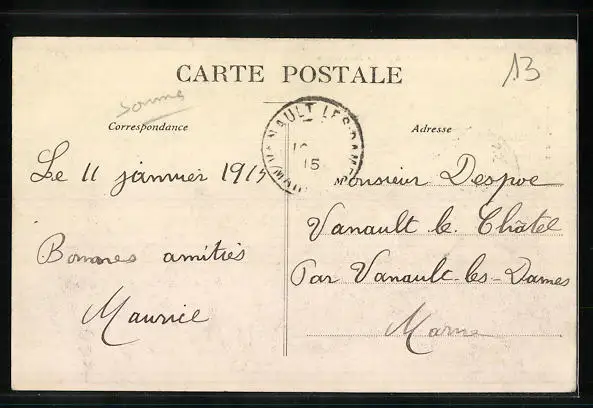 CARTE POSTALE
13
Somme
Correspondance
Adresse
VANAULT LES DAMES
15
Le 11 janvier 1915
Bonnes amitiés
Maurice
Monsieur Despoe
Vanault le Châtel
Par Vanault-les-Dames
Marne